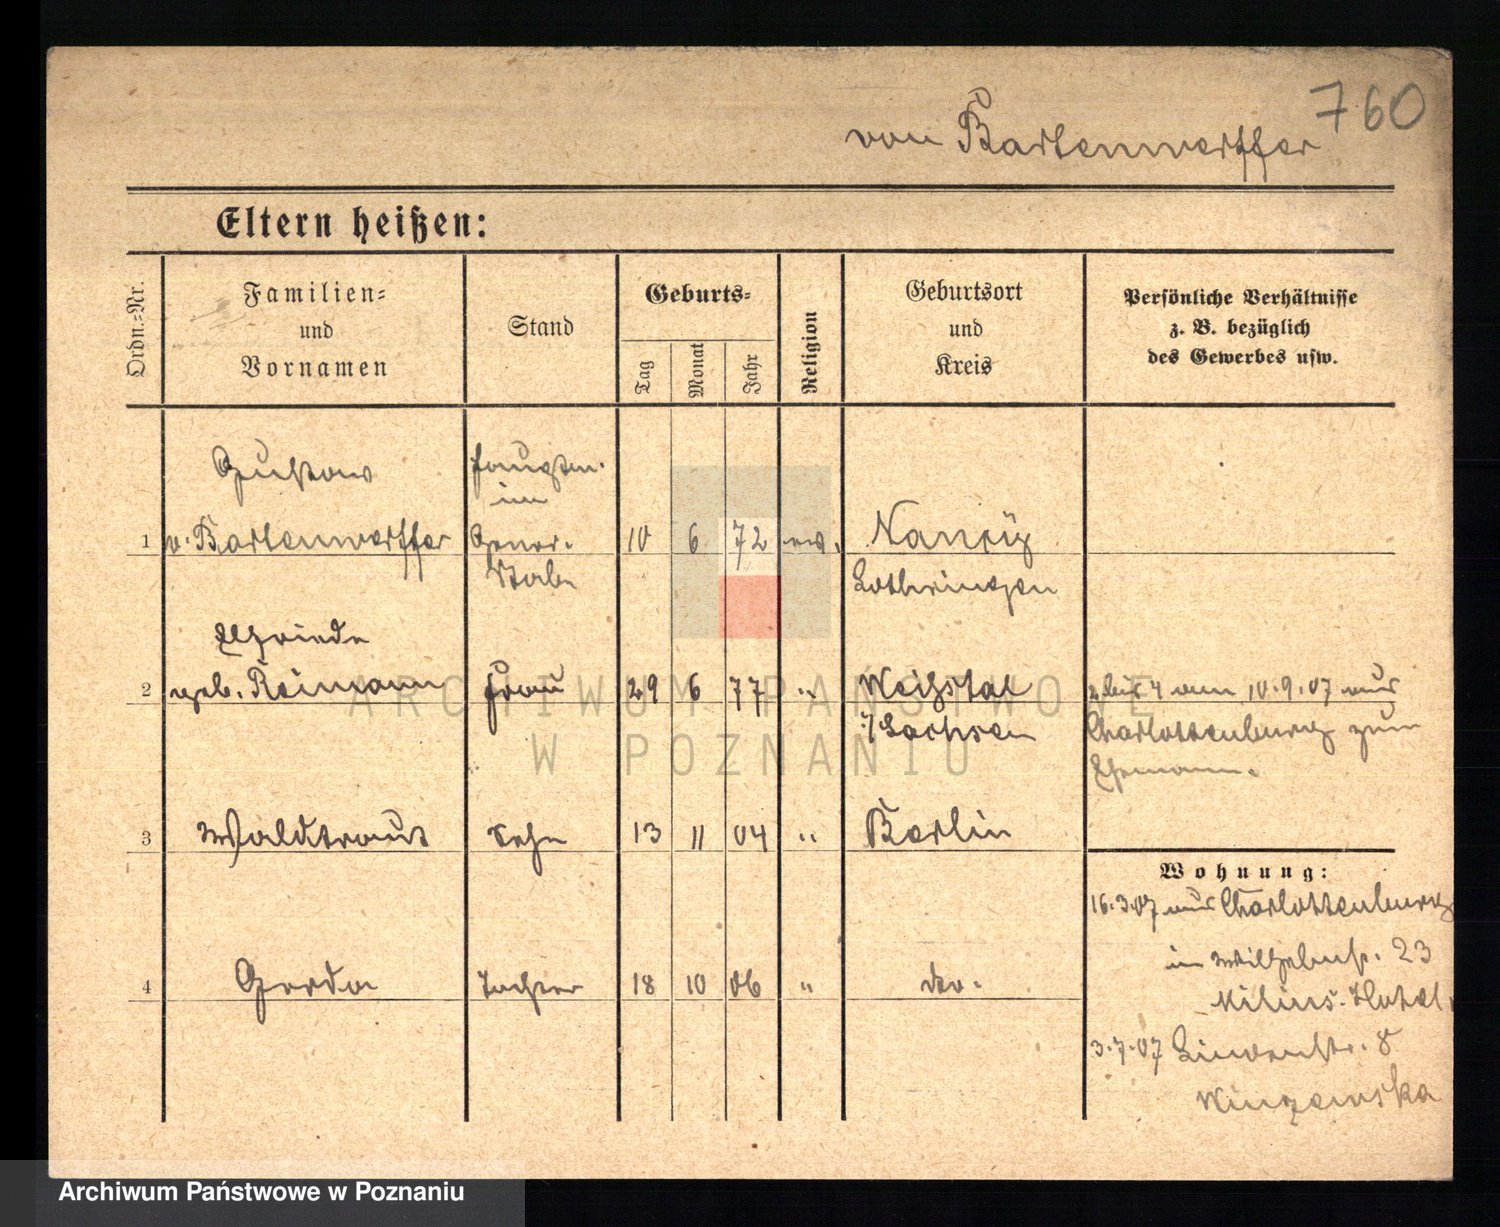 760
von Bartenwerffer
Eltern heißen:
Ordn.-Nr.
Familien-
und
Vornamen
Stand
Geburts-
Tag
Monat
Jahr
Religion
Geburtsort
und
Kreis
Persönliche Verhältnisse
z. B. bezüglich
des Gewerbes usw.
Gustav
Hauptm.
im
1 v. Bartenwerffer Gener. 10 6 72 ev. Nanzig
Stabe Lothringen
Elfriede
2 geb. Reimann Frau 29 6 77 " i/Sachsen
2 bis 4 am 10.9.07 aus
Charlottenburg zum
Ehemann.
3 Waldtraut 13 11 04 " Berlin
Wohnung:
16.3.07 aus Charlottenburg
4 Gerda Tochter 18 10 06 " do.
in Wilhelmstr. 23
Milius Hotel
3.7.07 Lindenstr. 8
ARCHIWUM PAŃSTWOWE
W POZNANIU
Archiwum Państwowe w Poznaniu